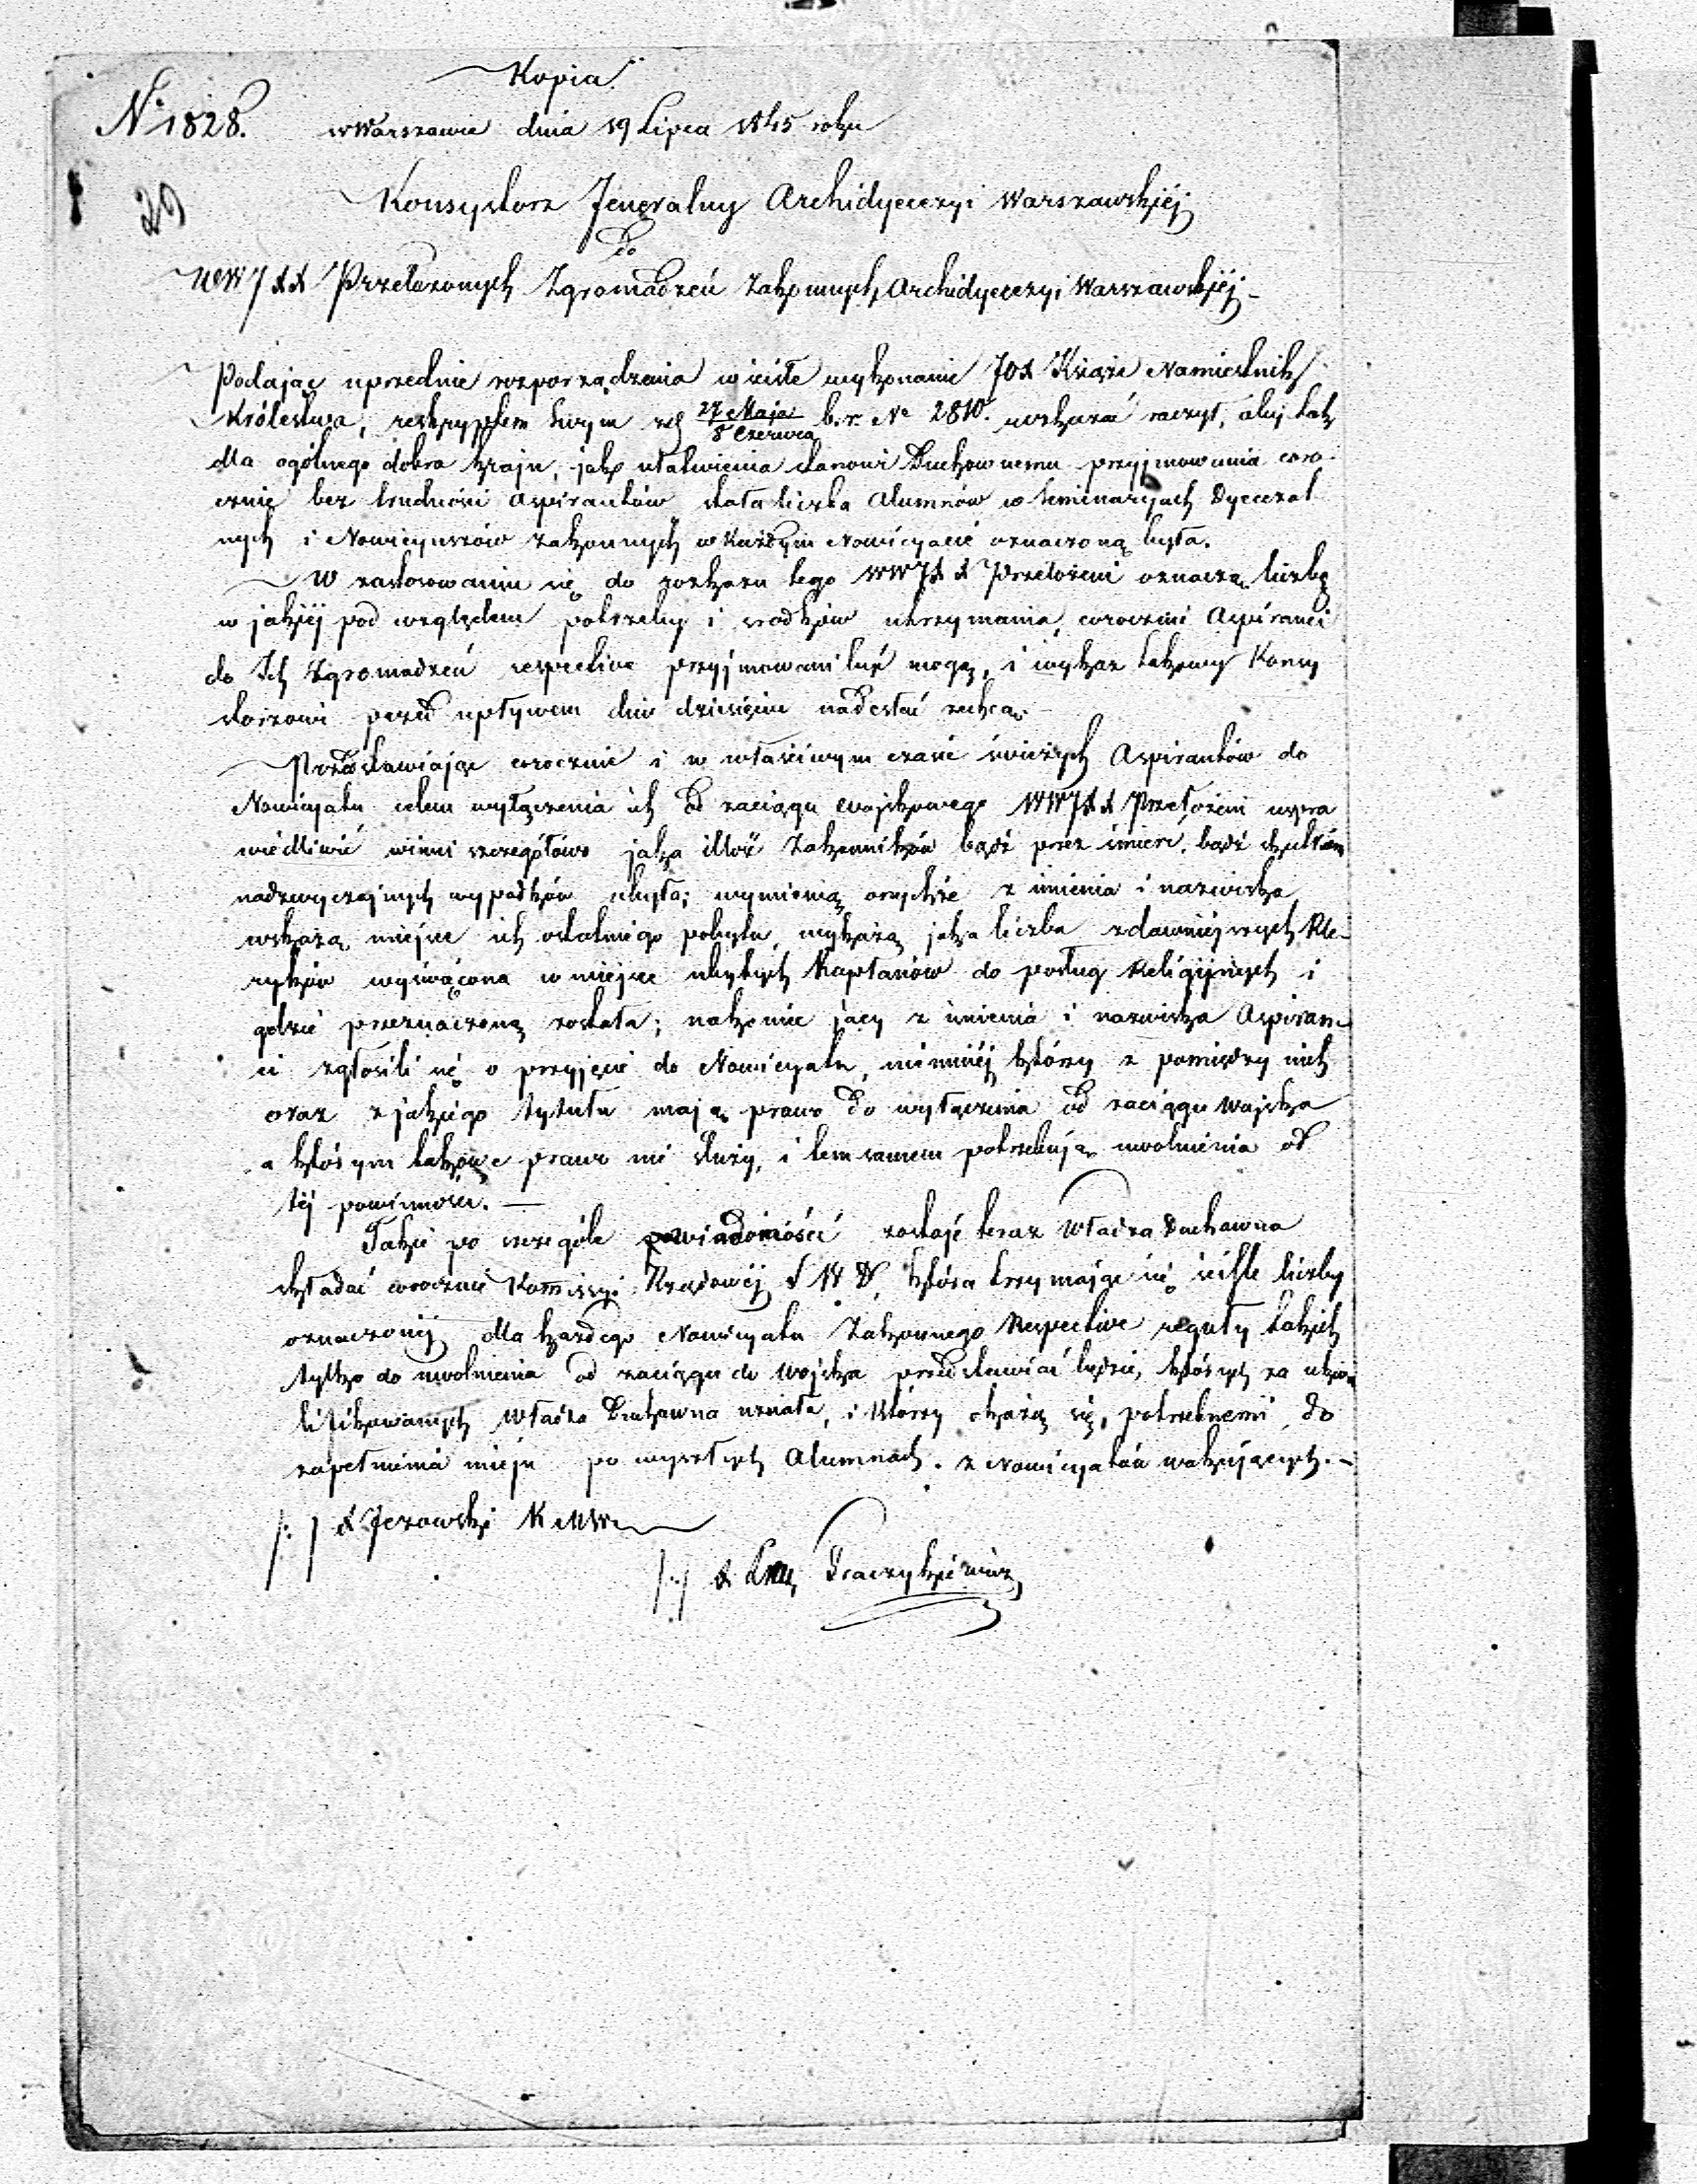 Kopia.
N° 1828. w Warszawie dnia 19 Lipca 1845 roku
29
Konsystorz Jeneralny Archidyecezyi Warszawskiéj
do
WWJXX Przełożonych Zgromadzeń Zakonnych Archidyecezyi Warszawskiéj
Podając uprzednie rozporządzenia w ściłe wykonanie JOX Książe Namiestnik
Królestwa, reskryptem swym z d 27 Maja / 8 Czerwca b.r. N° 2810. wskazać raczył, aby tak
dla ogólnego dobra kraju, jako ułatwienia stanowi Duchownemu przyjmowania coro-
cznie bez trudności Aspirantów stała liczba Alumnów w Seminaryjach Dyecezal
nych i Nowicyuszów zakonnych w każdym Nowicyacie oznaczoną była.
W zastosowaniu się do rozkazu tego WWJXX Przełożeni oznaczą liczbę
w jakiéj pod względem potrzeby i srodków utrzymania, corocznie Aspiranci
do Ich Zgromadzeń respective przyjmowani być mogą, i wykaz takowy Konsy
storzowi przed upływem dni dziesięciu nadesłać zechcą.
Przedstawiając corocznie i w właściwym czasie świeżych Aspirantów do
Nowicyatu celem wyłączenia ich od zaciągu wojskowego WWJXX Przełożeni uspra
wiedliwić winni szczegółowo jaka illość Zakonników bądź przez śmierć, bądź skutkiem
nadzwyczajnych wypadków ubyła; wymienią onychże z imienia i nazwiska
wskażą miejsce ich ostatniego pobytu, wykażą jaka liczba z dawniejszych Kle-
ryków wyświącona w miejsce ubyłych Kapłanów do posług Religijnych i
gdzie przeznaczoną została; nakonie jacy z imienia i nazwiska Aspiran-
ci zgłosili się o przyjęcie do Nowicyatu, niemniéj którzy z pomiędzy nich
oraz z jakiego tytułu mają prawo do wyłączenia od zaciągu wojska
a którym takowe prawo nie służy, i tem samem potrzebują uwolnienia od
téj powinności. —
Takie po szczególe powiadomości zostaje teraz Władza Duchowna
składać corocznie Kommissyi Rządowéj S W D, która trzymając się ściśle liczby
oznaczonéj dla każdego Nowicyatu Zakonnego Respective reguły takich
tylko do uwolnienia od zaciągu do wojska przedstawiać będzie, których za ukwa
lifikowanych Władza Duchowna uznała, i którzy okażą się, potrzebnemi do
zapełnienia miejsc po wyszłych Alumnach z Nowicyatów wakujących. —
/:/ X Jezowski K M W
/:/ X Draczykiewicz